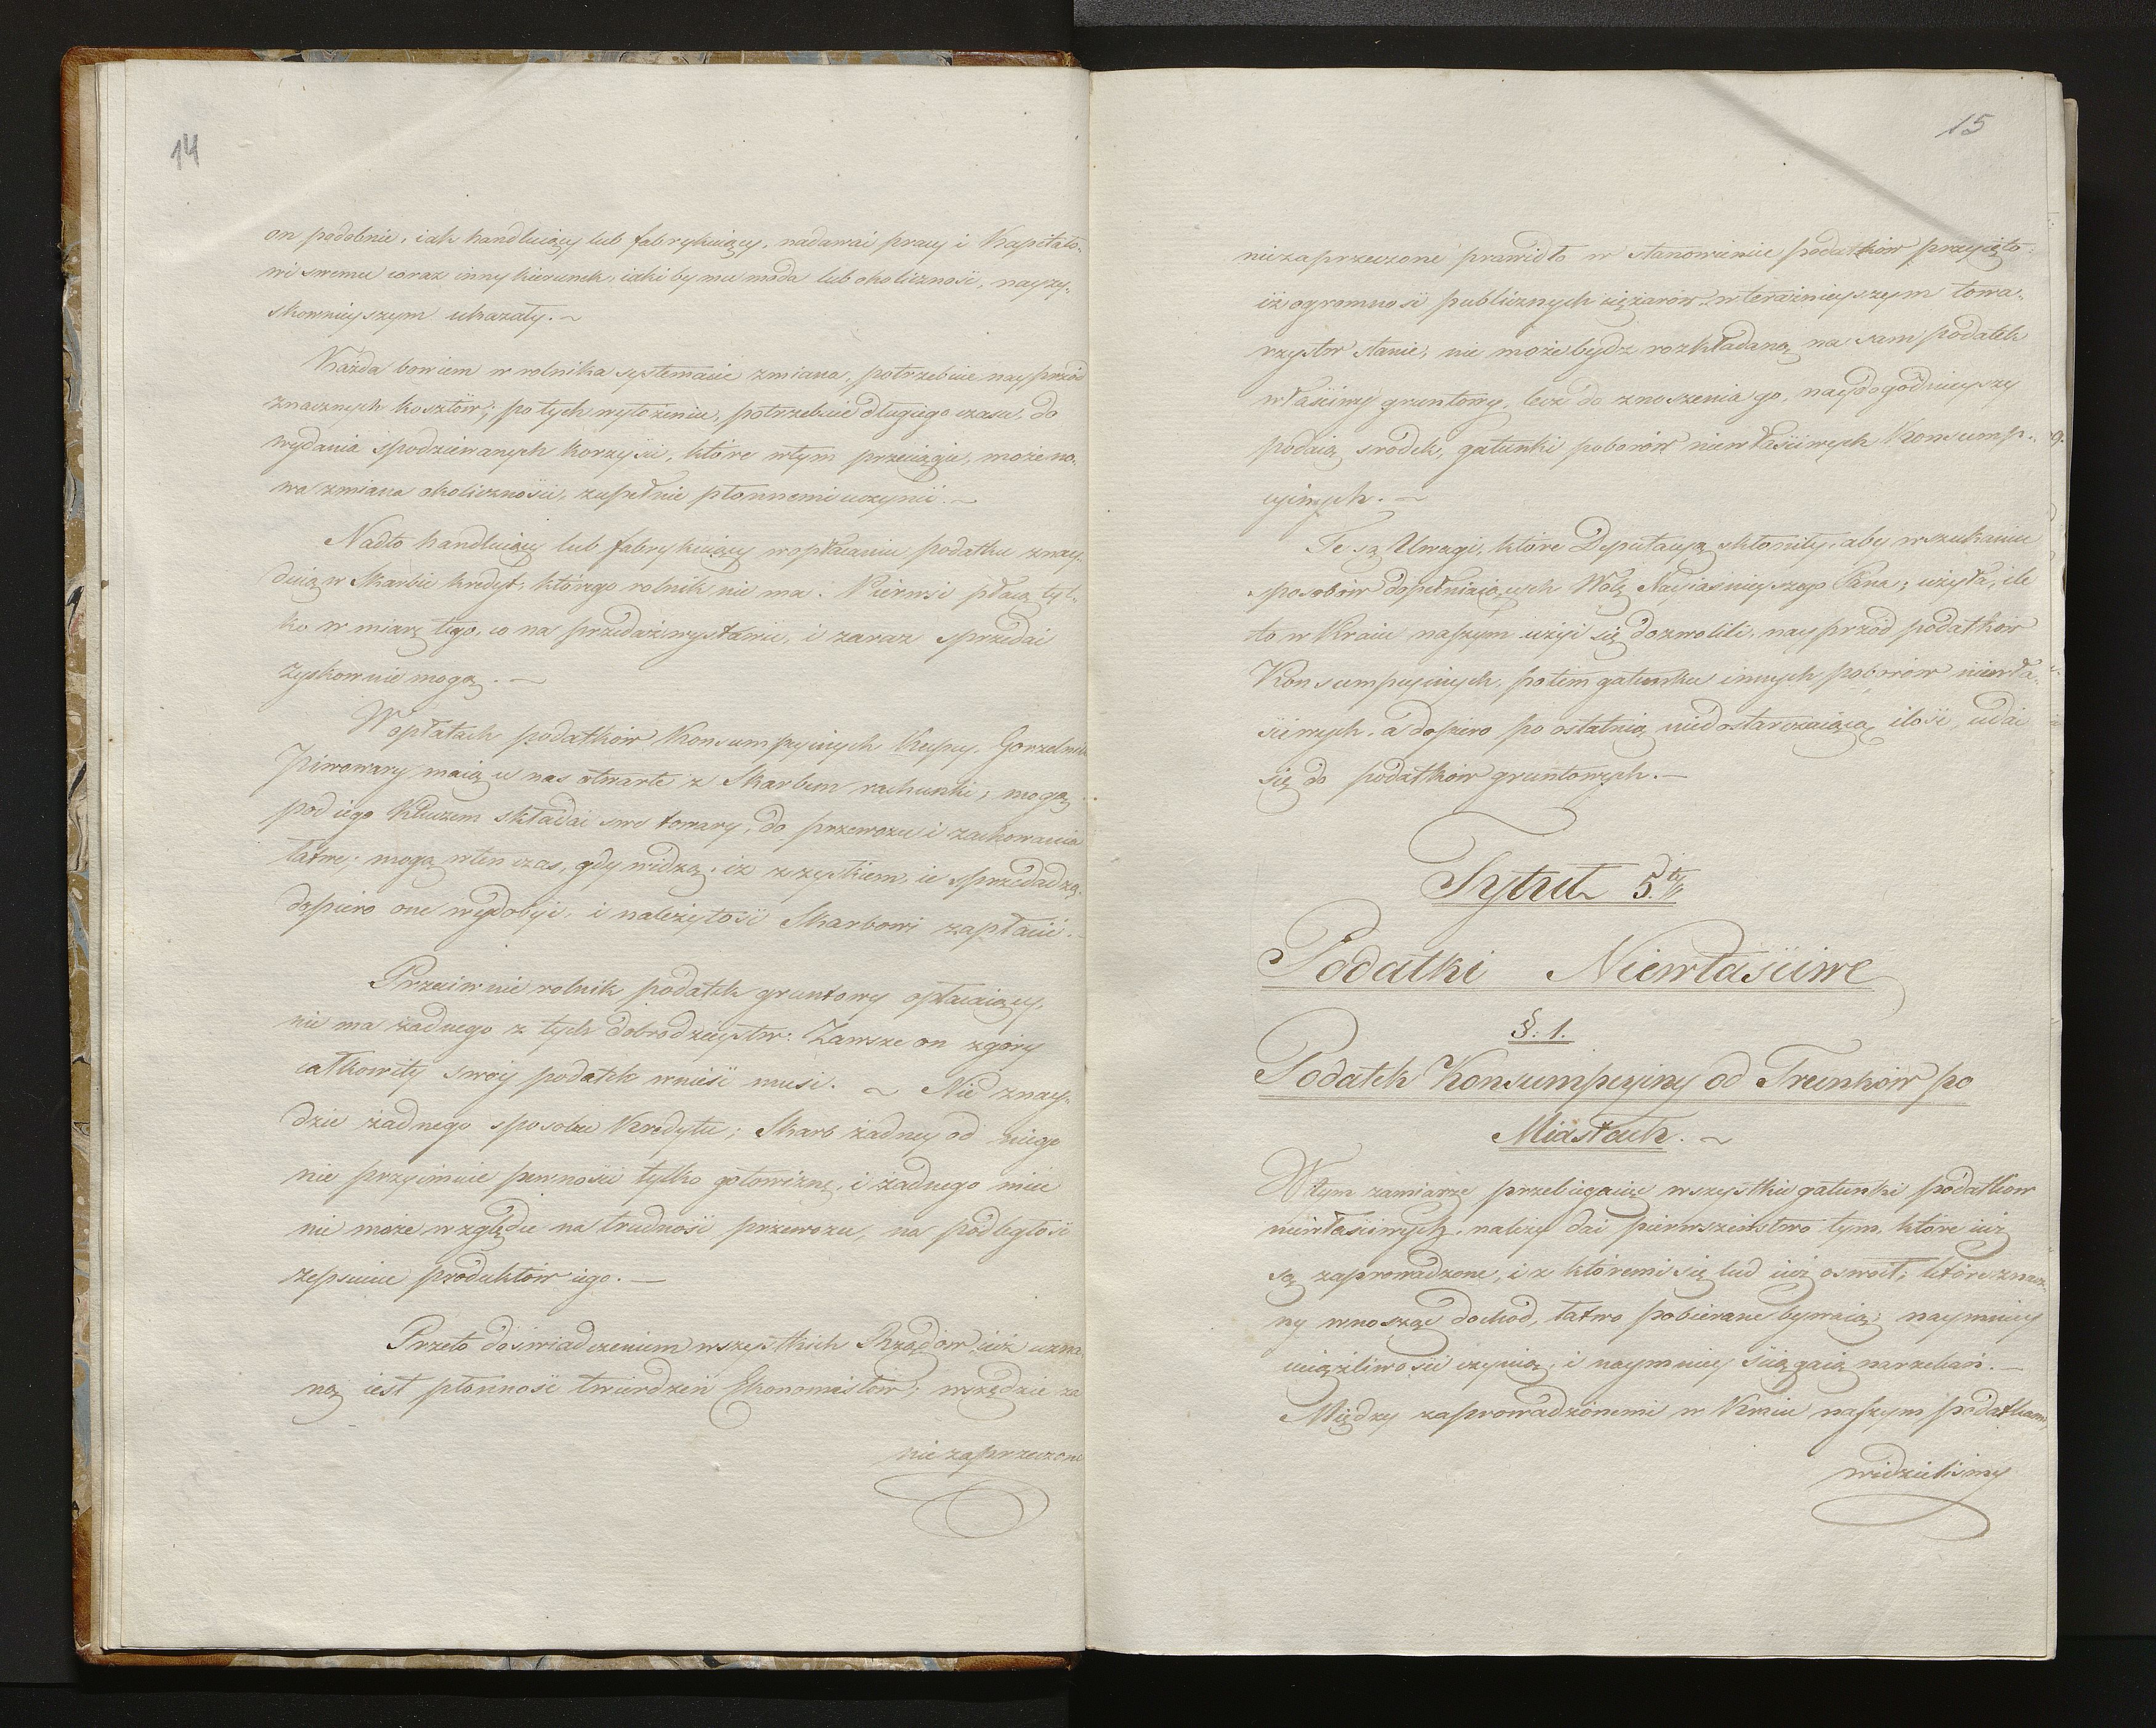 14
on podobnie, iak handluiący lub fabrykuiący, nadawać pracy i Kapitało-
wi swemu coraz inny kierunek, iaki by mu moda lub okoliczność, nayzy-
skownieyszym ukazały.~
Każda bowiem w rolnika systemacie zmiana, potrzebuie nayprzód
znacznych kosztów; po tych wyłożeniu, potrzebuie długiego czasu, do
wydania spodziewanych korzyści, które w tym przeciągu, może no-
wa zmiana okoliczności, zupełnie płonnemi uczynić.~
Nadto handluiący lub fabrykuiący w opłacaniu podatku znay-
duią w Skarbie kredyt, którego rolnik nie ma. Pierwsi płacą tyl-
ko w miarę tego, co na przedaż wystawu, i zaraz sprzedać
zyskownie mogą.—
W opłatach podatków Konsumpcyinych Kupcy, Gorzelnicy
Piwowary maią u nas otwarte z Skarbem rachunki; mogą
pod iego Kluczem składać swe towary, do przewozu i zachowania
łatwe; mogą wten czas, gdy widzą, iż z zyskiem, ie sprzedadzą,
dopiero one wydobyć, i należytość Skarbowi zapłacić.—
Przeciwnie rolnik podatek gruntowy opłacaiący,
nie ma żadnego z tych dobrodzieystw. Zawsze on zgóry
całkowity swóy podatek wnieść musi. ~ Nie znay-
dzie żadnego sposobu Kredytu; Skarb żadney od niego
nie przyimuie pewności tylko gotowiznę, i żadnego mieć
nie może względu na trudność przewozu, na podległość
zepsuciu produktów iego.—
Przeto doświadczeniem wszystkich Rządów, iuż uzna-
ną iest płonność twierdzeń Ekonomistów; wszędzie za
niezaprzeczone
15
niezaprzeczone prawidło w stanowieniu podatków przyięto:
iż ogromność publicznych ciężarów w teraźnieyszym towa-
rzystw stanie, nie może bydź rozkładaną na sam podatek
właściwy gruntowy, lecz do znoszenia go, naydogodnieyszy
podaią srodek, gatunki poborów niewłaściwych Konsump-
cyinych.~
Te są Uwagi, które Deputacyą skłoniły, aby w szukaniu
sposobów dopełniaiących Wolą Nayiaśnieyszego Pana; użyła, ile
to w Kraiu naszym użyć się dozwoliło, nayprzód podatków
Konsumpcyinych, potem gatunku innych poborów niewła-
ściwych, a dopiero po ostatnią niedostarczaiącą ilość, udać
się do podatków gruntowych.—
Tytuł 5.ty
Podatki Niewłaściwe
§: 1.
Podatek Konsumpcyiny od Trunków po
Miastach.~
W tym zamiarze przebiegaiąc wszystkie gatunki podatków
niewłaściwych, należy dać pierwszeństwo tym, które iuż
są zaprowadzone, i z któremi się lud iuż oswoił, które znacz-
ny wnosząc dochod, łatwo pobierane bywaią; naymniey
uciążliwości czynią, i naymniey ściągaią narzekań.—
Między zaprowadzonemi w Kraiu naszym podatkami,
widzieliśmy